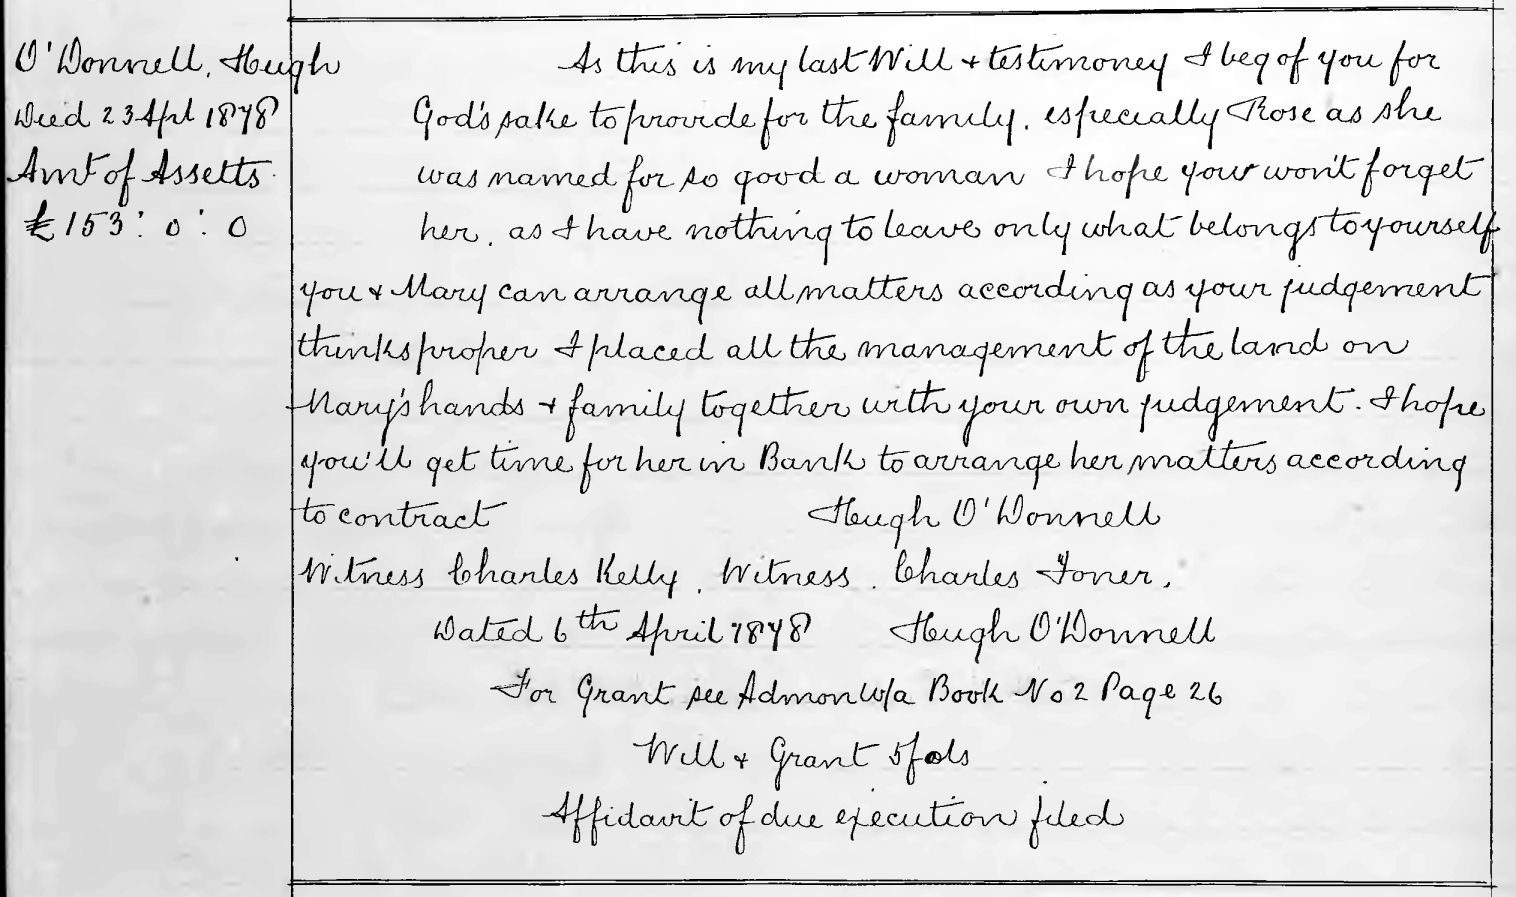 O'Donnell, Hugh
Died 23 Apl 1878
Amt of Assetts
£153 : 0 : 0
As this is my last Will & testimoney I beg of you for
God's sake to provide for the family, especially Rose as she
was named for so good a woman I hope your won't forget
her, as I have nothing to leave only what belongs to yourself
you & Mary can arrange all matters according as your judgement
thinks proper I placed all the management of the land on
Mary's hands & family together with your own judgement. I hope
you'll get time for her in Bank to arrange her matters according
to contract Hugh O'Donnell
Witness Charles Kelly, Witness, Charles Toner,
Dated 6th April 1878 Hugh O'Donnell
For Grant see Admon W/a Book No 2 Page 26
Will & Grant 5 fols
Affidavit of due execution filed